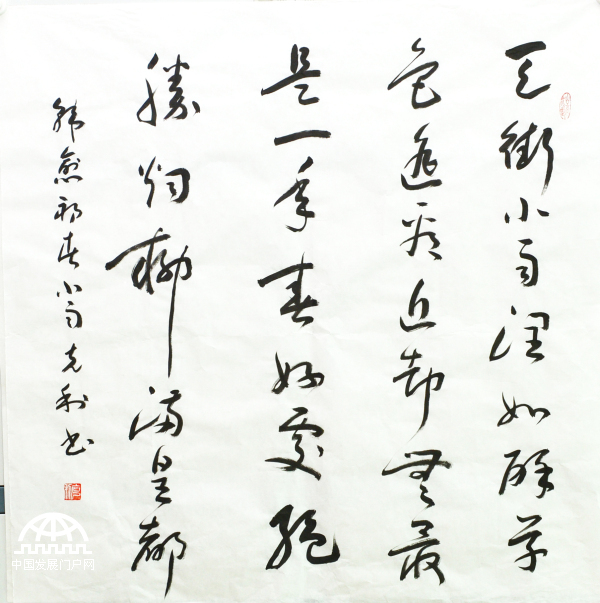 天街小雨润如酥草
色遥看近却无最
是一年春好处绝
胜烟柳满皇都
韩愈初春小雨克利书
中国发展门户网